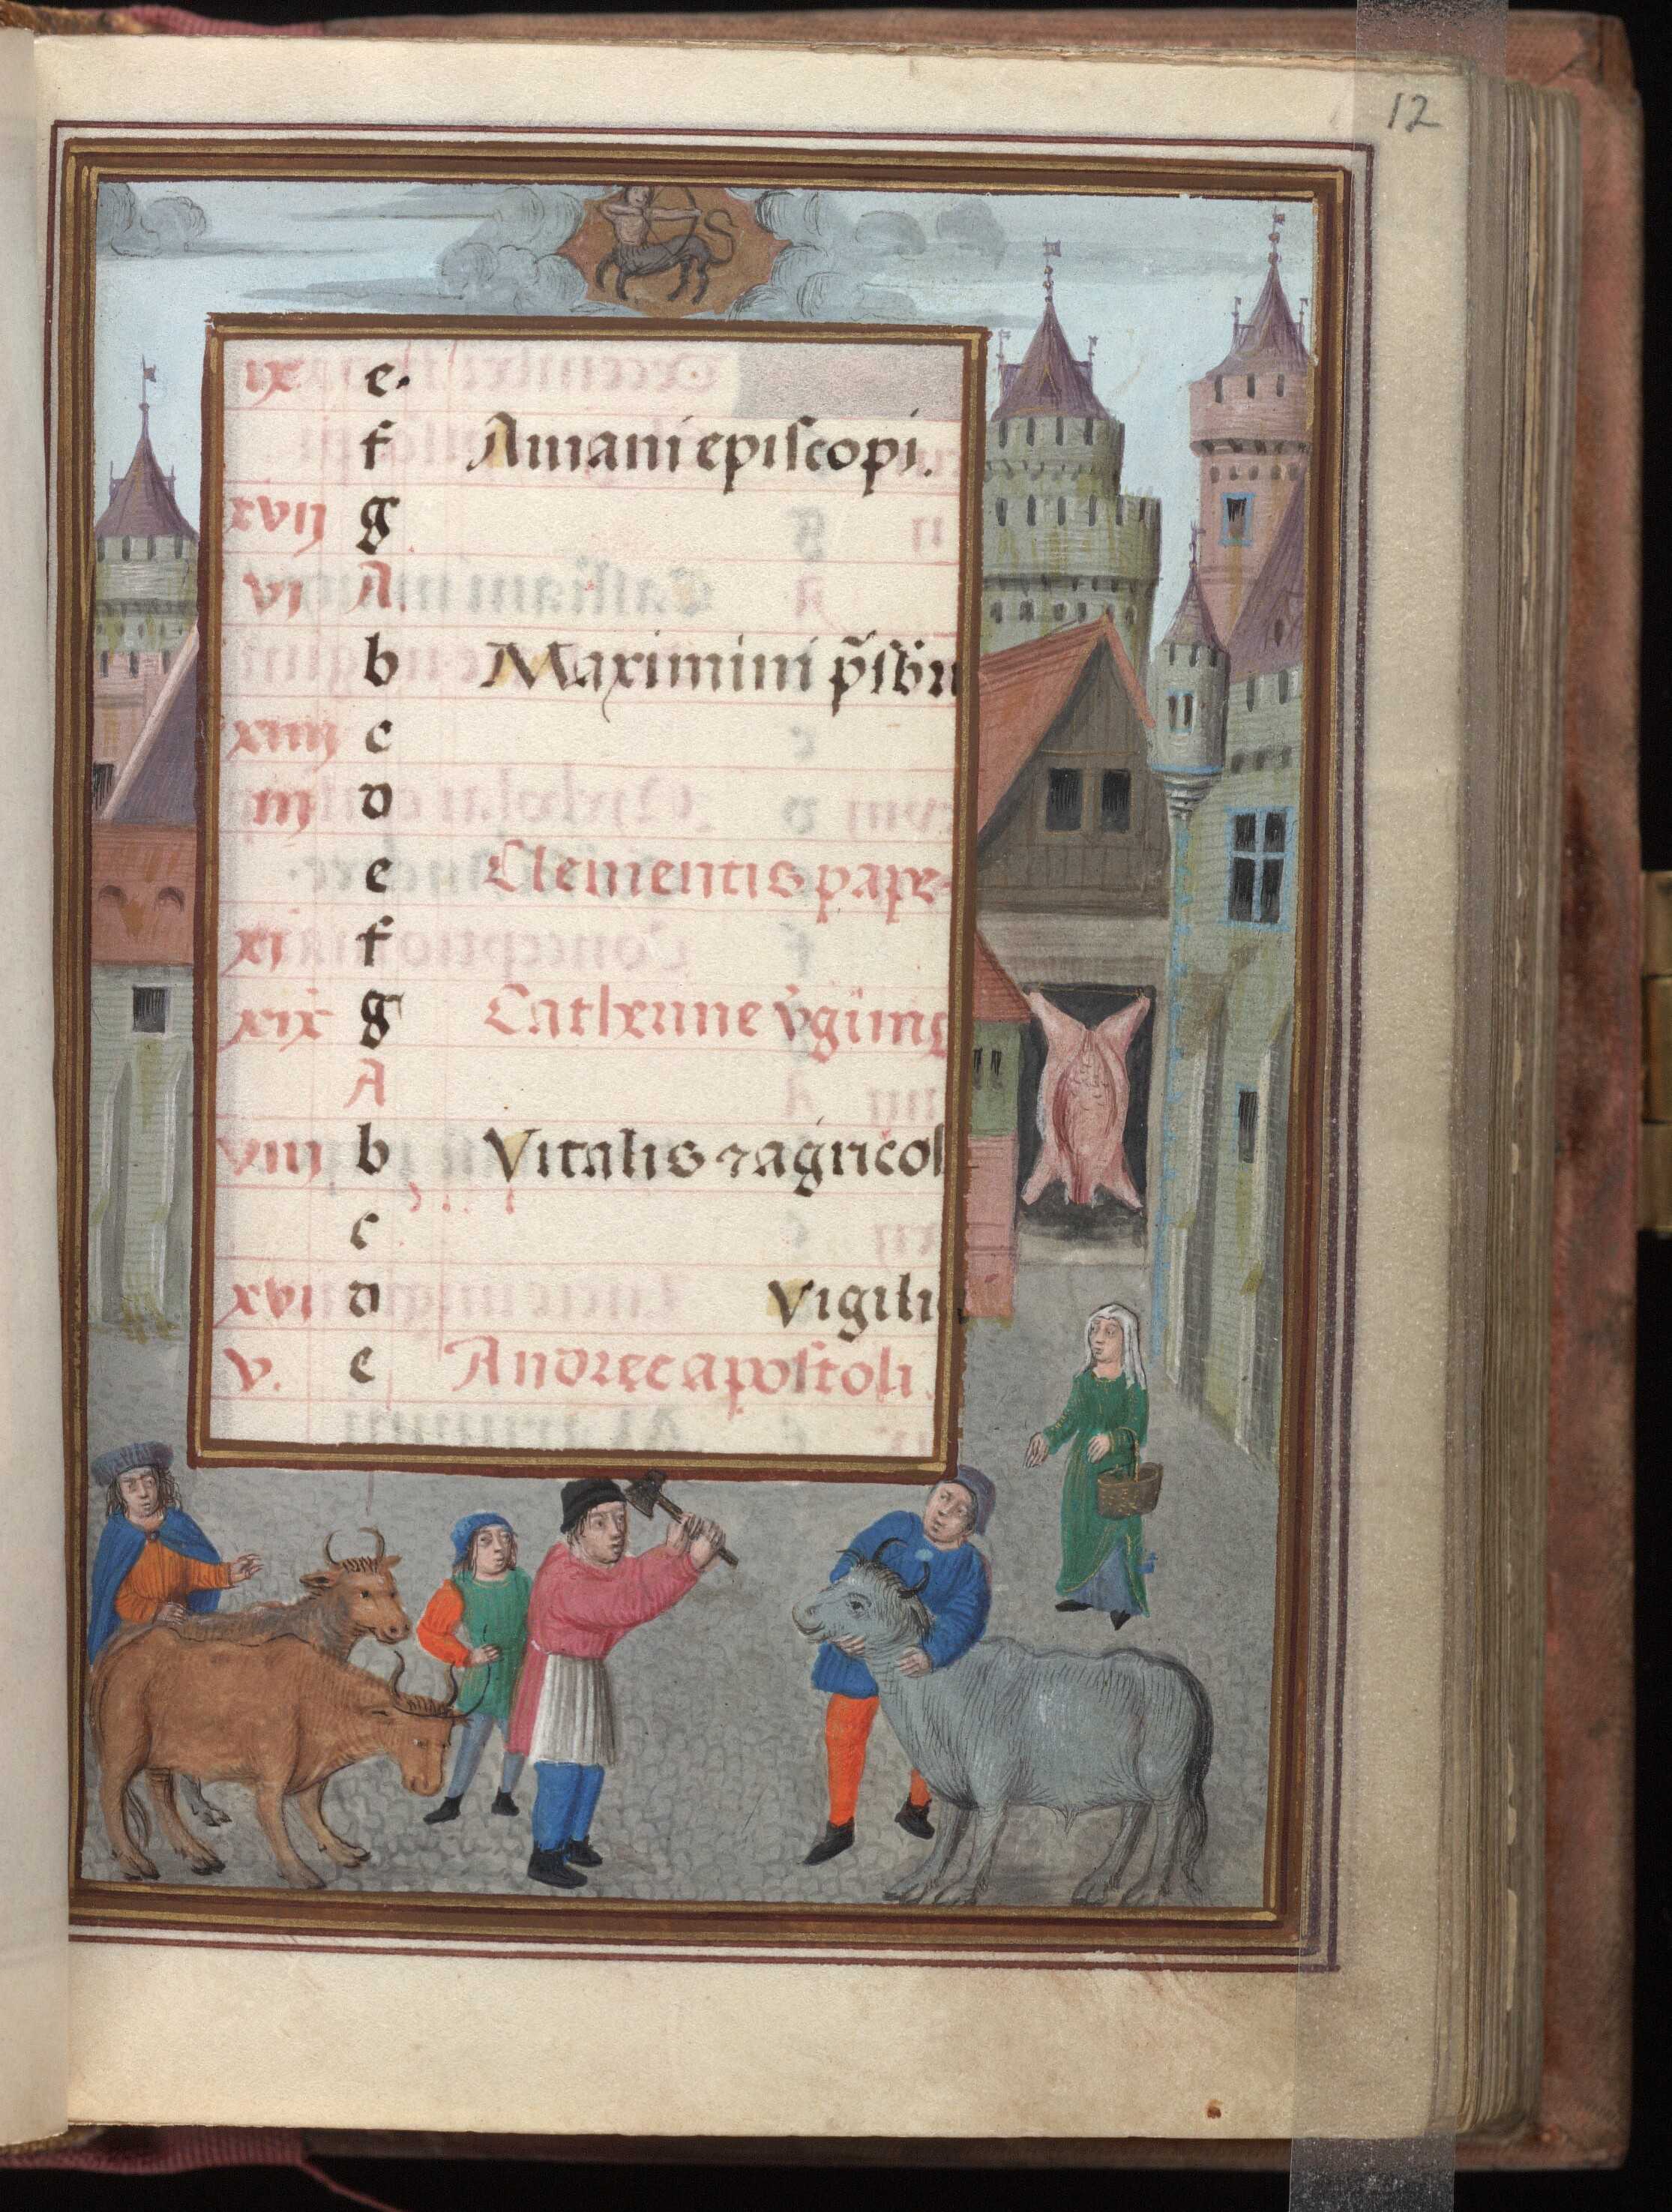 12
ix e.
f Aniani episcopi.
xvij g
vi A.
b Maximini
xiiij c
iij d
e Clementis pape
xi f
xix g Catherine
A
viij b Vitalis ⁊ agricol
c
xvi d Vigili
v. e Andree apostoli.